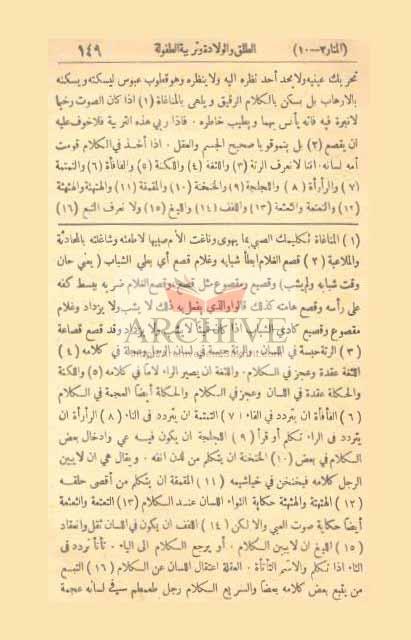 (المنار ٣ — ١٠) الطلق والولادة وتربية الطفولة ١٤٩
تحريك عينيه ولا يجد أحد نظره اليه ولا ينظره وهو قطوب عبوس ليسكته ويسكنه
بالارهاب بل يسكن بالكلام الرقيق ويلهى بالمناغاة (١) اذا كان الصوت رخيما
لا نبرة فيه فانه يأنس بهما ويطيب خاطره . فاذا ربي هذه التربية فلا خوف عليه
ان يقصع (٢) بل ينمو قويا صحيح الجسم والعقل . اذا أخذ في الكلام قومت
أمه لسانه . اننا لا نعرف الرتة (٣) واللثغة (٤) واللكنة (٥) والفأفأة (٦) والتمتمة
(٧) والرأرأة (٨) واللجلجة (٩) والخنخنة (١٠) والمقمقة (١١) والهتهتة والهثهثة
(١٢) والتعتعة والثعثعة (١٣) واللفف (١٤) والليغ (١٥) ولا نعرف التبع (١٦)
(١) المناغاة تكليمك الصبي بما يهوى وناغت الأم صبيها لاطفته وشاغلته بالمحادثة
والملاعبة (٢) قصع الغلام ابطأ شبابه وغلام قصع أي بطي الشباب (يعني حان
وقت شبابه ولم يشب) وقصيع ومقصوع مثل قصع وقصع الغلام ضربه ببسط كفه
على رأسه وقصع هامته كذلك قالوا والذي يفعل به ذلك لا يشب ولا يزداد وغلام
مقصوع وقصيع كادي الشباب اذا كان قميئا لا يشب ولا يزداد وقد قصع قصاعة
(٣) الرتة حبسة في اللسان والرتة حبسة في لسان الرجل وعجلة في كلامه (٤)
اللثغة عقدة وعجز في الكلام . واللثغة ان يصير الراء لاما في كلامه (٥) واللكنة
والحكلة عقدة في اللسان وعجز في الكلام والحكلة أيضا العجمة في الكلام
(٦) الفأفأة ان يتردد في الفاء (٧) التمتمة ان يتردد في التاء (٨) الرأرأة ان
يتردد في الراء تكلم أو قرأ (٩) اللجلجة ان يكون فيه عي وادخال بعض
الكلام في بعض (١٠) الخنخنة ان يتكلم من لدن انفه . ويقال هي ان لا يبين
الرجل كلامه فيخنخن في خياشيمه (١١) المقمقة ان يتكلم من أقصى حلقه
(١٢) الهتهتة والهثهثة حكاية التواء اللسان عند الكلام (١٣) التعتعة والثعثعة
أيضا حكاية صوت العيي والالكن (١٤) اللفف ان يكون في اللسان ثقل وانعقاد
(١٥) الليغ ان لا يبين الكلام . أو يرجع الكلام الى الياء . تأتأ تردد في
التاء اذا تكلم والاسم التأتأة . العقلة اعتقال اللسان عن الكلام (١٦) التبع
من يتبع بعض كلامه بعضا والسريع الكلام رجل طمطم في لسانه عجمة
ARCHIVE